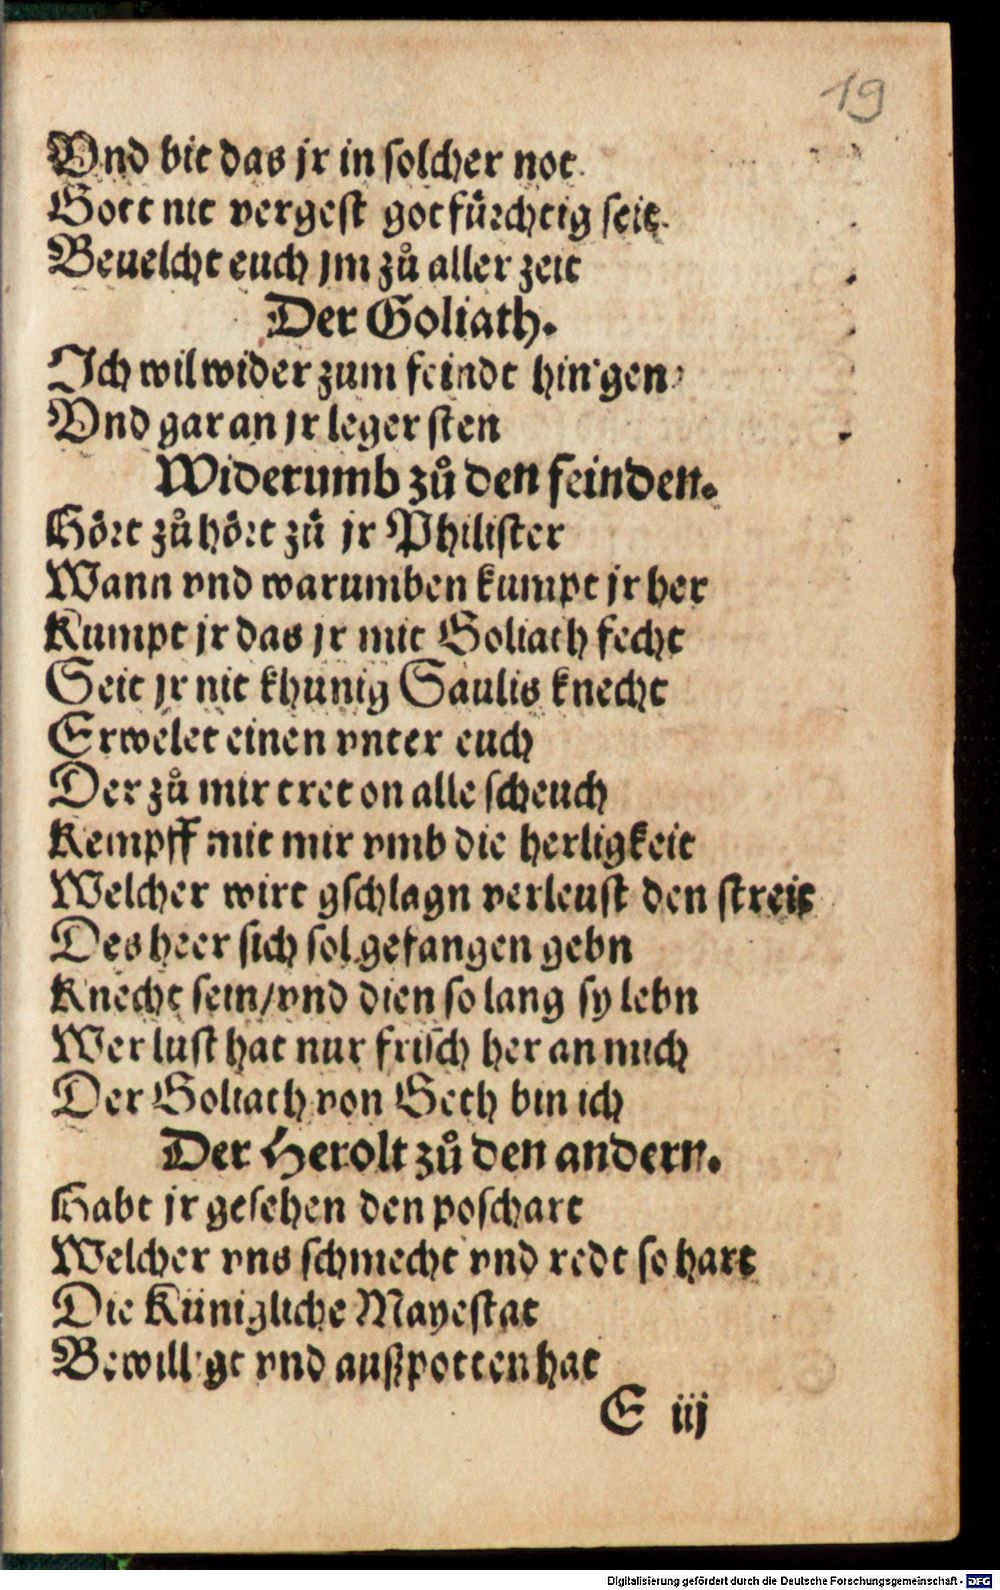 19
Vnd bit das jr in solcher not
Gott nit vergest gotfürchtig seit.
Beuelcht euch jm zů aller zeit
Der Goliath.
Ich wil wider zum feindt hin gen
Vnd gar an jr leger sten
Widerumb zů den feinden.
Hört zů hört zů jr Philister
Wann vnd warumben kumpt jr her
Kumpt jr das jr mit Goliath fecht
Seit jr nit khunig Saulis knecht
Erwelet einen vnter euch
Der zů mir tret on alle scheuch
Kempff mit mir vmb die herligkeit
Welcher wirt gschlagn verleust den streit
Des heer sich sol gefangen gebn
Knecht sein/vnd dien so lang sy lebn
Wer lust hat nur frisch her an mich
Der Goliath von Geth bin ich
Der Herolt zů den andern.
Habt jr gesehen den poschart
Welcher vns schmecht vnd redt so hart
Die Künigliche Mayestat
Bewilligt vnd außpotten hat
E iij
Digitalisierung gefördert durch die Deutsche Forschungsgemeinschaft - DFG